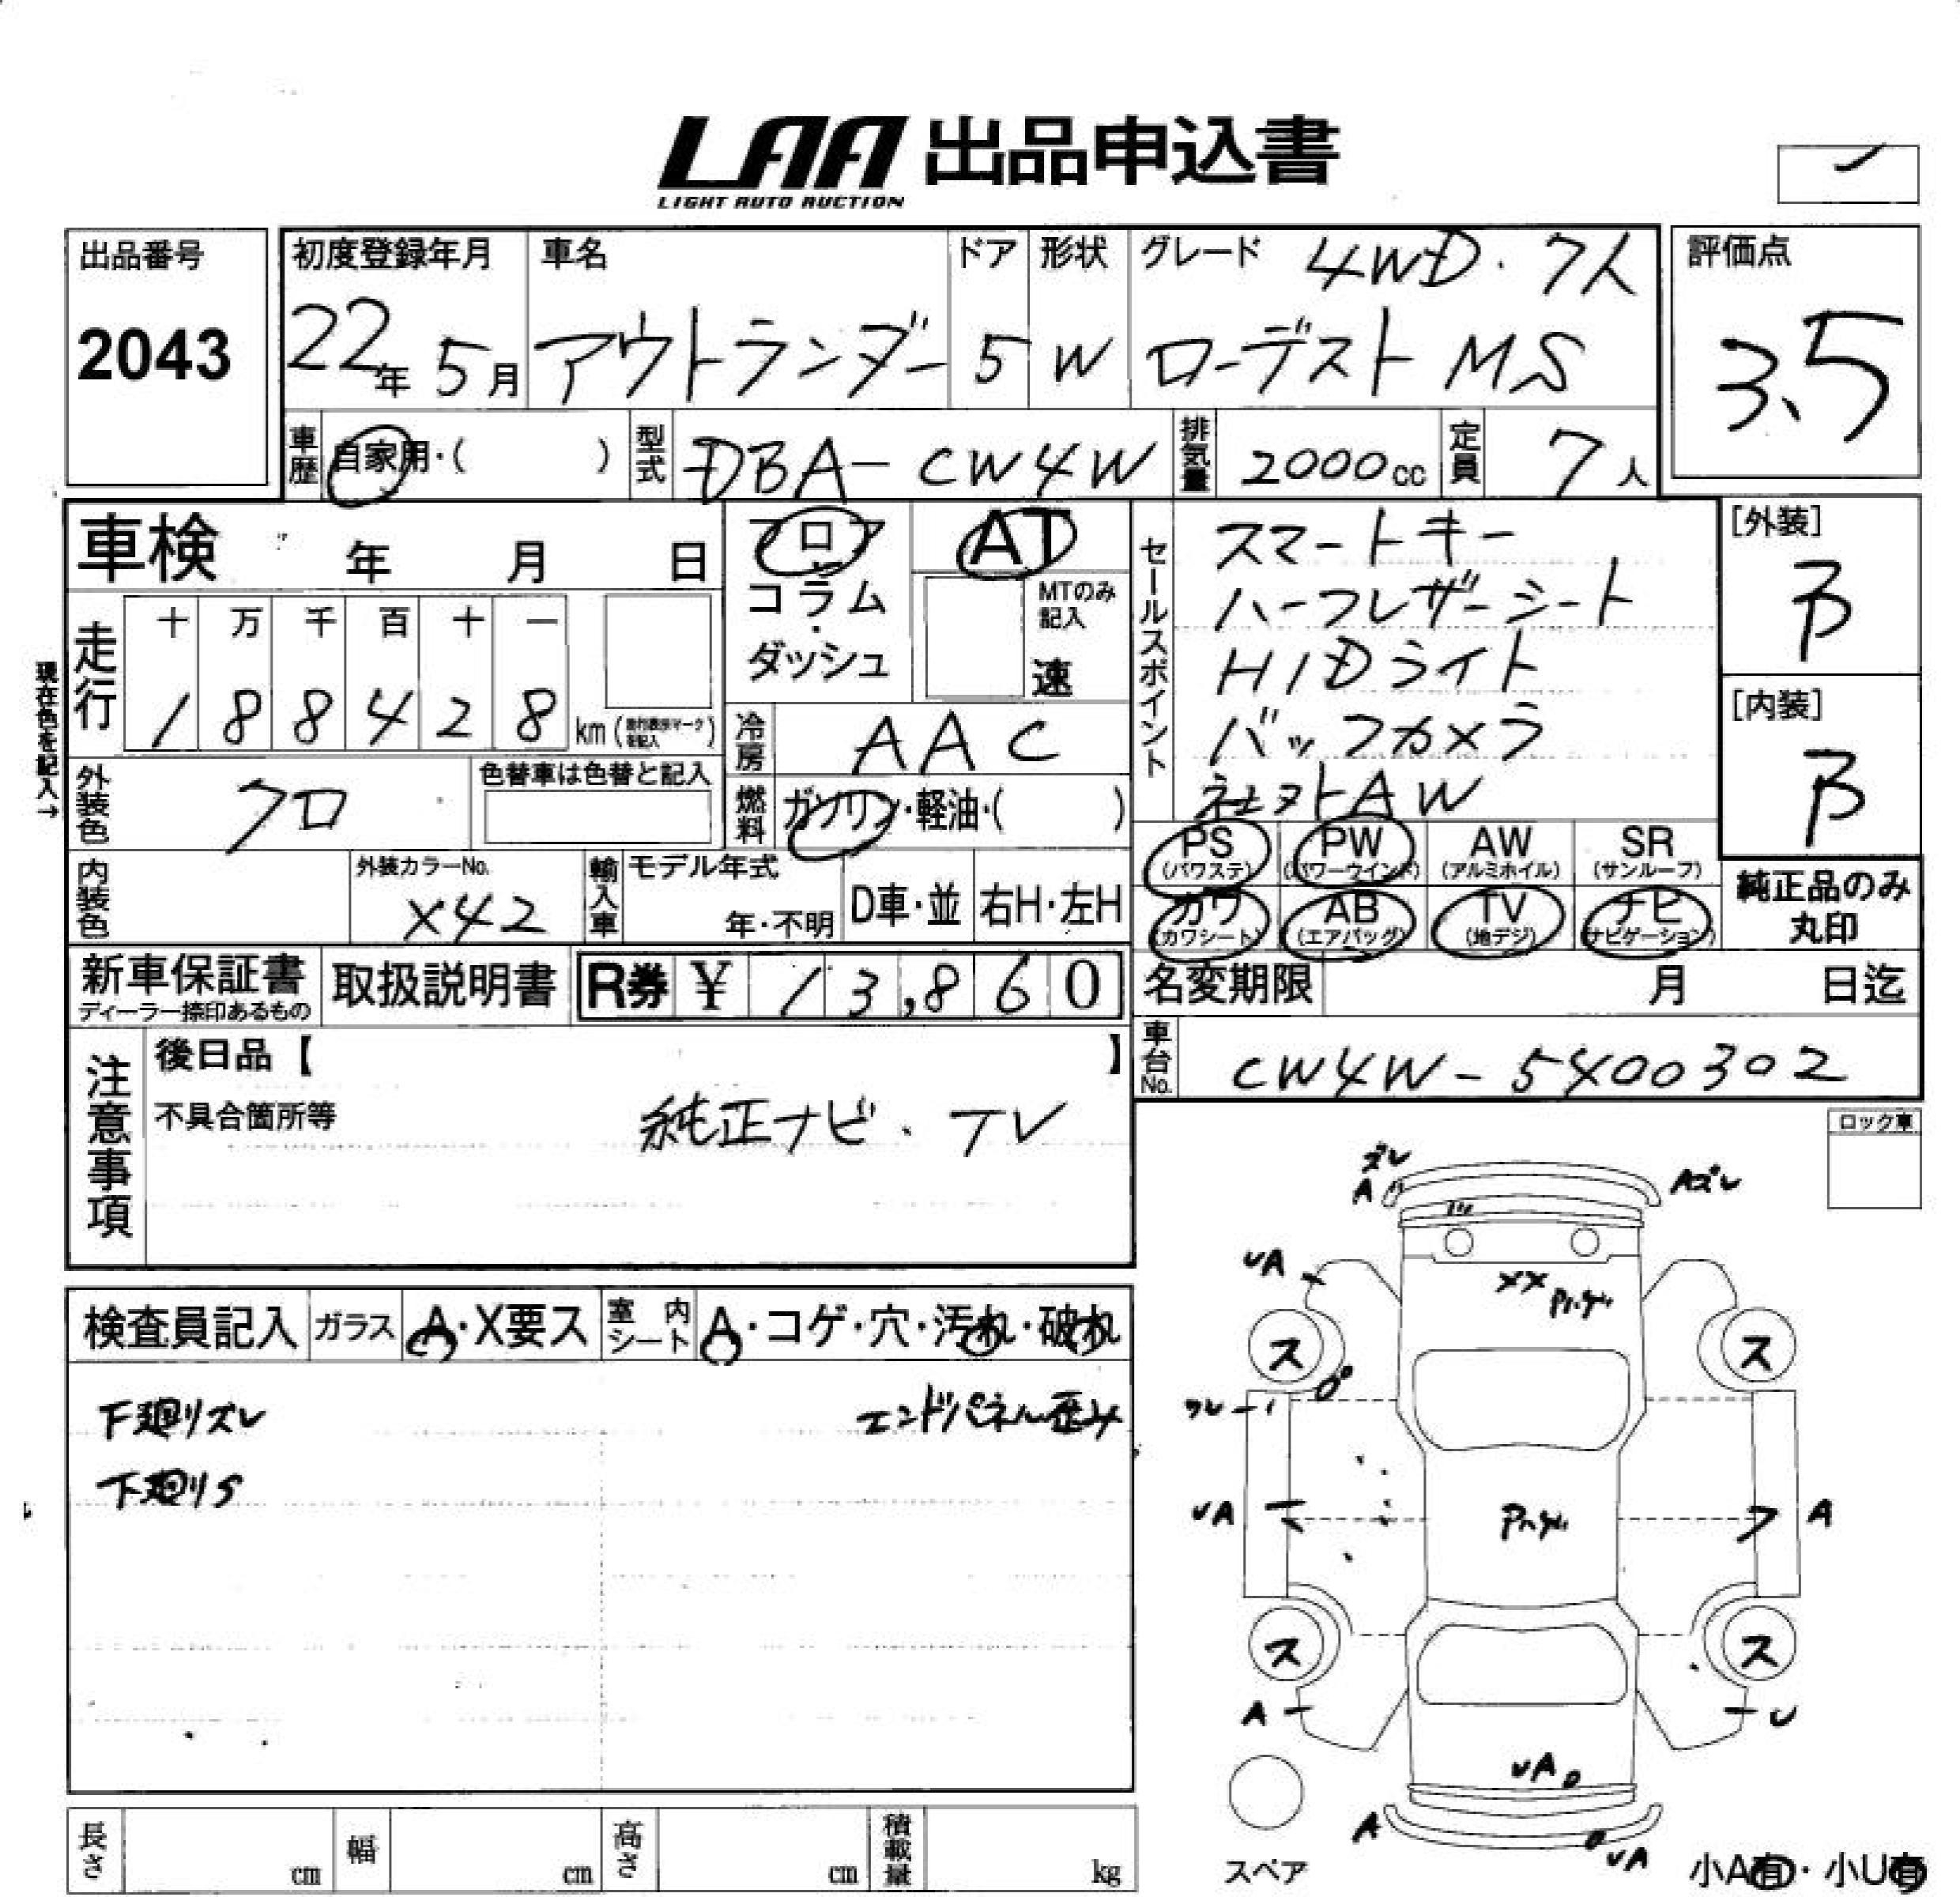 LAA 出品申込書
LIGHT AUTO AUCTION
出品番号
2043
初度登録年月
22年 5月
車名
アウトランダー
ドア
5
形状
W
グレード 4WD・7人
ローデスト MS
評価点
3.5
車歴 自家用・( )
型式 DBA-CW4W
排気量 2000cc
定員 7人
車検 年 月 日
フロア
コラム
・
ダッシュ
AT
MTのみ
記入
速
セールスポイント
スマートキー
ハーフレザーシート
HIDライト
バックカメラ
社外AW
[外装]
B
[内装]
B
現在色を記入→
走行
十 万 千 百 十 一
1 8 8 4 2 8 km (走行表示マークを記入)
冷房 AAC
外装色 クロ
色替車は色替と記入
燃料 ガソリン・軽油・( )
PS (パワステ)
PW (パワーウインド)
AW (アルミホイル)
SR (サンルーフ)
カワ (カワシート)
AB (エアバッグ)
TV (地デジ)
ナビ (ナビゲーション)
純正品のみ
丸印
内装色
外装カラーNo.
X42
輸入車
モデル年式
年・不明
D車・並
右H・左H
新車保証書
ディーラー捺印あるもの
取扱説明書
R券 ¥ 13,860
名変期限 月 日迄
車台No. CW4W-5400302
注意事項
後日品【 】
不具合箇所等
純正ナビ・TV
ロック車
検査員記入
ガラス A・X要ス
室内シート A・コゲ・穴・汚れ・破れ
下廻りズレ
エンドパネル歪み
下廻りS
ズレ
A
Aズレ
UA
XX
ス
ス
UA
A
ス
ス
A
U
UA
A
UA
スペア
小A有・小U有
長さ cm
幅 cm
高さ cm
積載量 kg